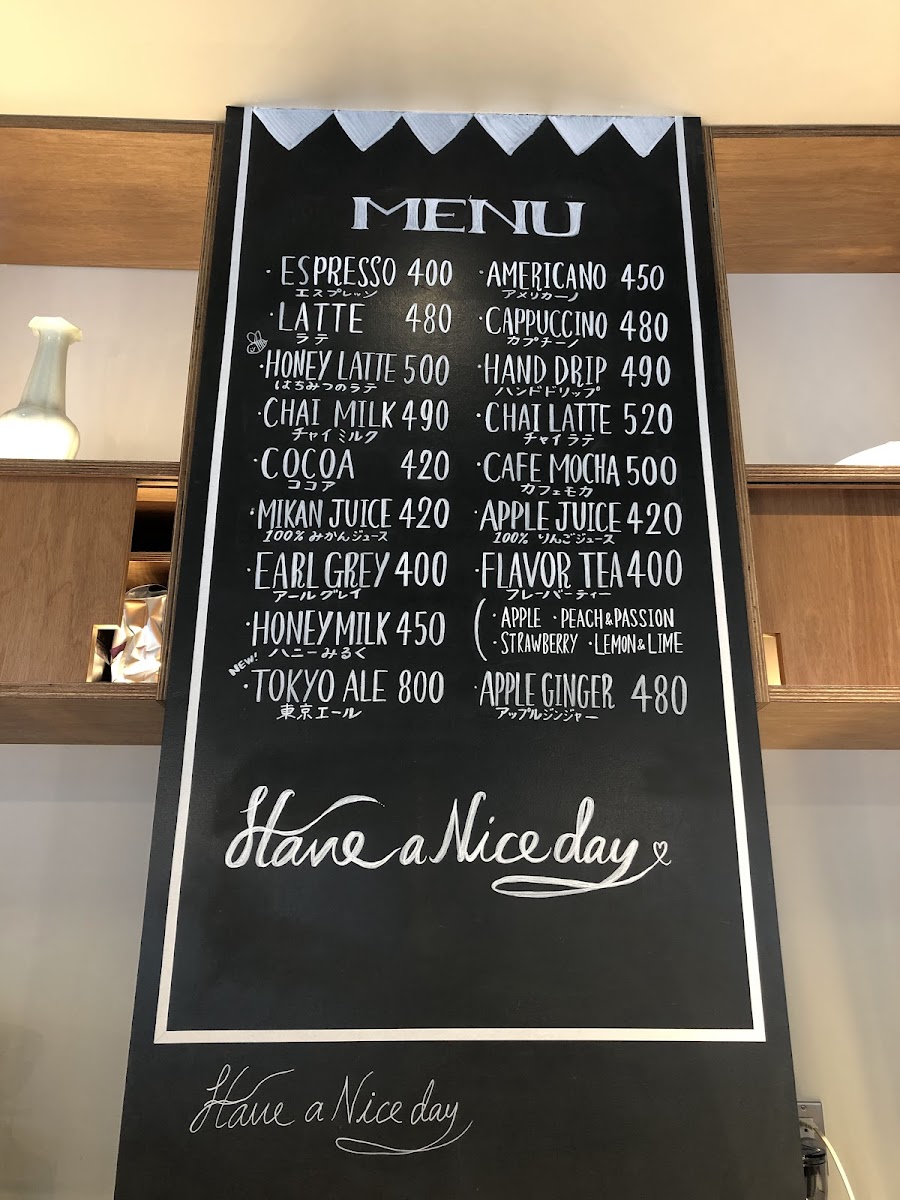 MENU
· ESPRESSO 400
エスプレッソ
· LATTE 480
ラテ
· HONEY LATTE 500
はちみつのラテ
· CHAI MILK 490
チャイミルク
· COCOA 420
ココア
· MIKAN JUICE 420
100% みかんジュース
· EARL GREY 400
アールグレイ
· HONEY MILK 450
ハニーみるく
NEW!
· TOKYO ALE 800
東京エール
· AMERICANO 450
アメリカーノ
· CAPPUCCINO 480
カプチーノ
· HAND DRIP 490
ハンドドリップ
· CHAI LATTE 520
チャイラテ
· CAFE MOCHA 500
カフェモカ
· APPLE JUICE 420
100% りんごジュース
· FLAVOR TEA 400
フレーバーティー
( · APPLE · PEACH & PASSION
· STRAWBERRY · LEMON & LIME
· APPLE GINGER 480
アップルジンジャー
Have a Nice day
Have a Nice day